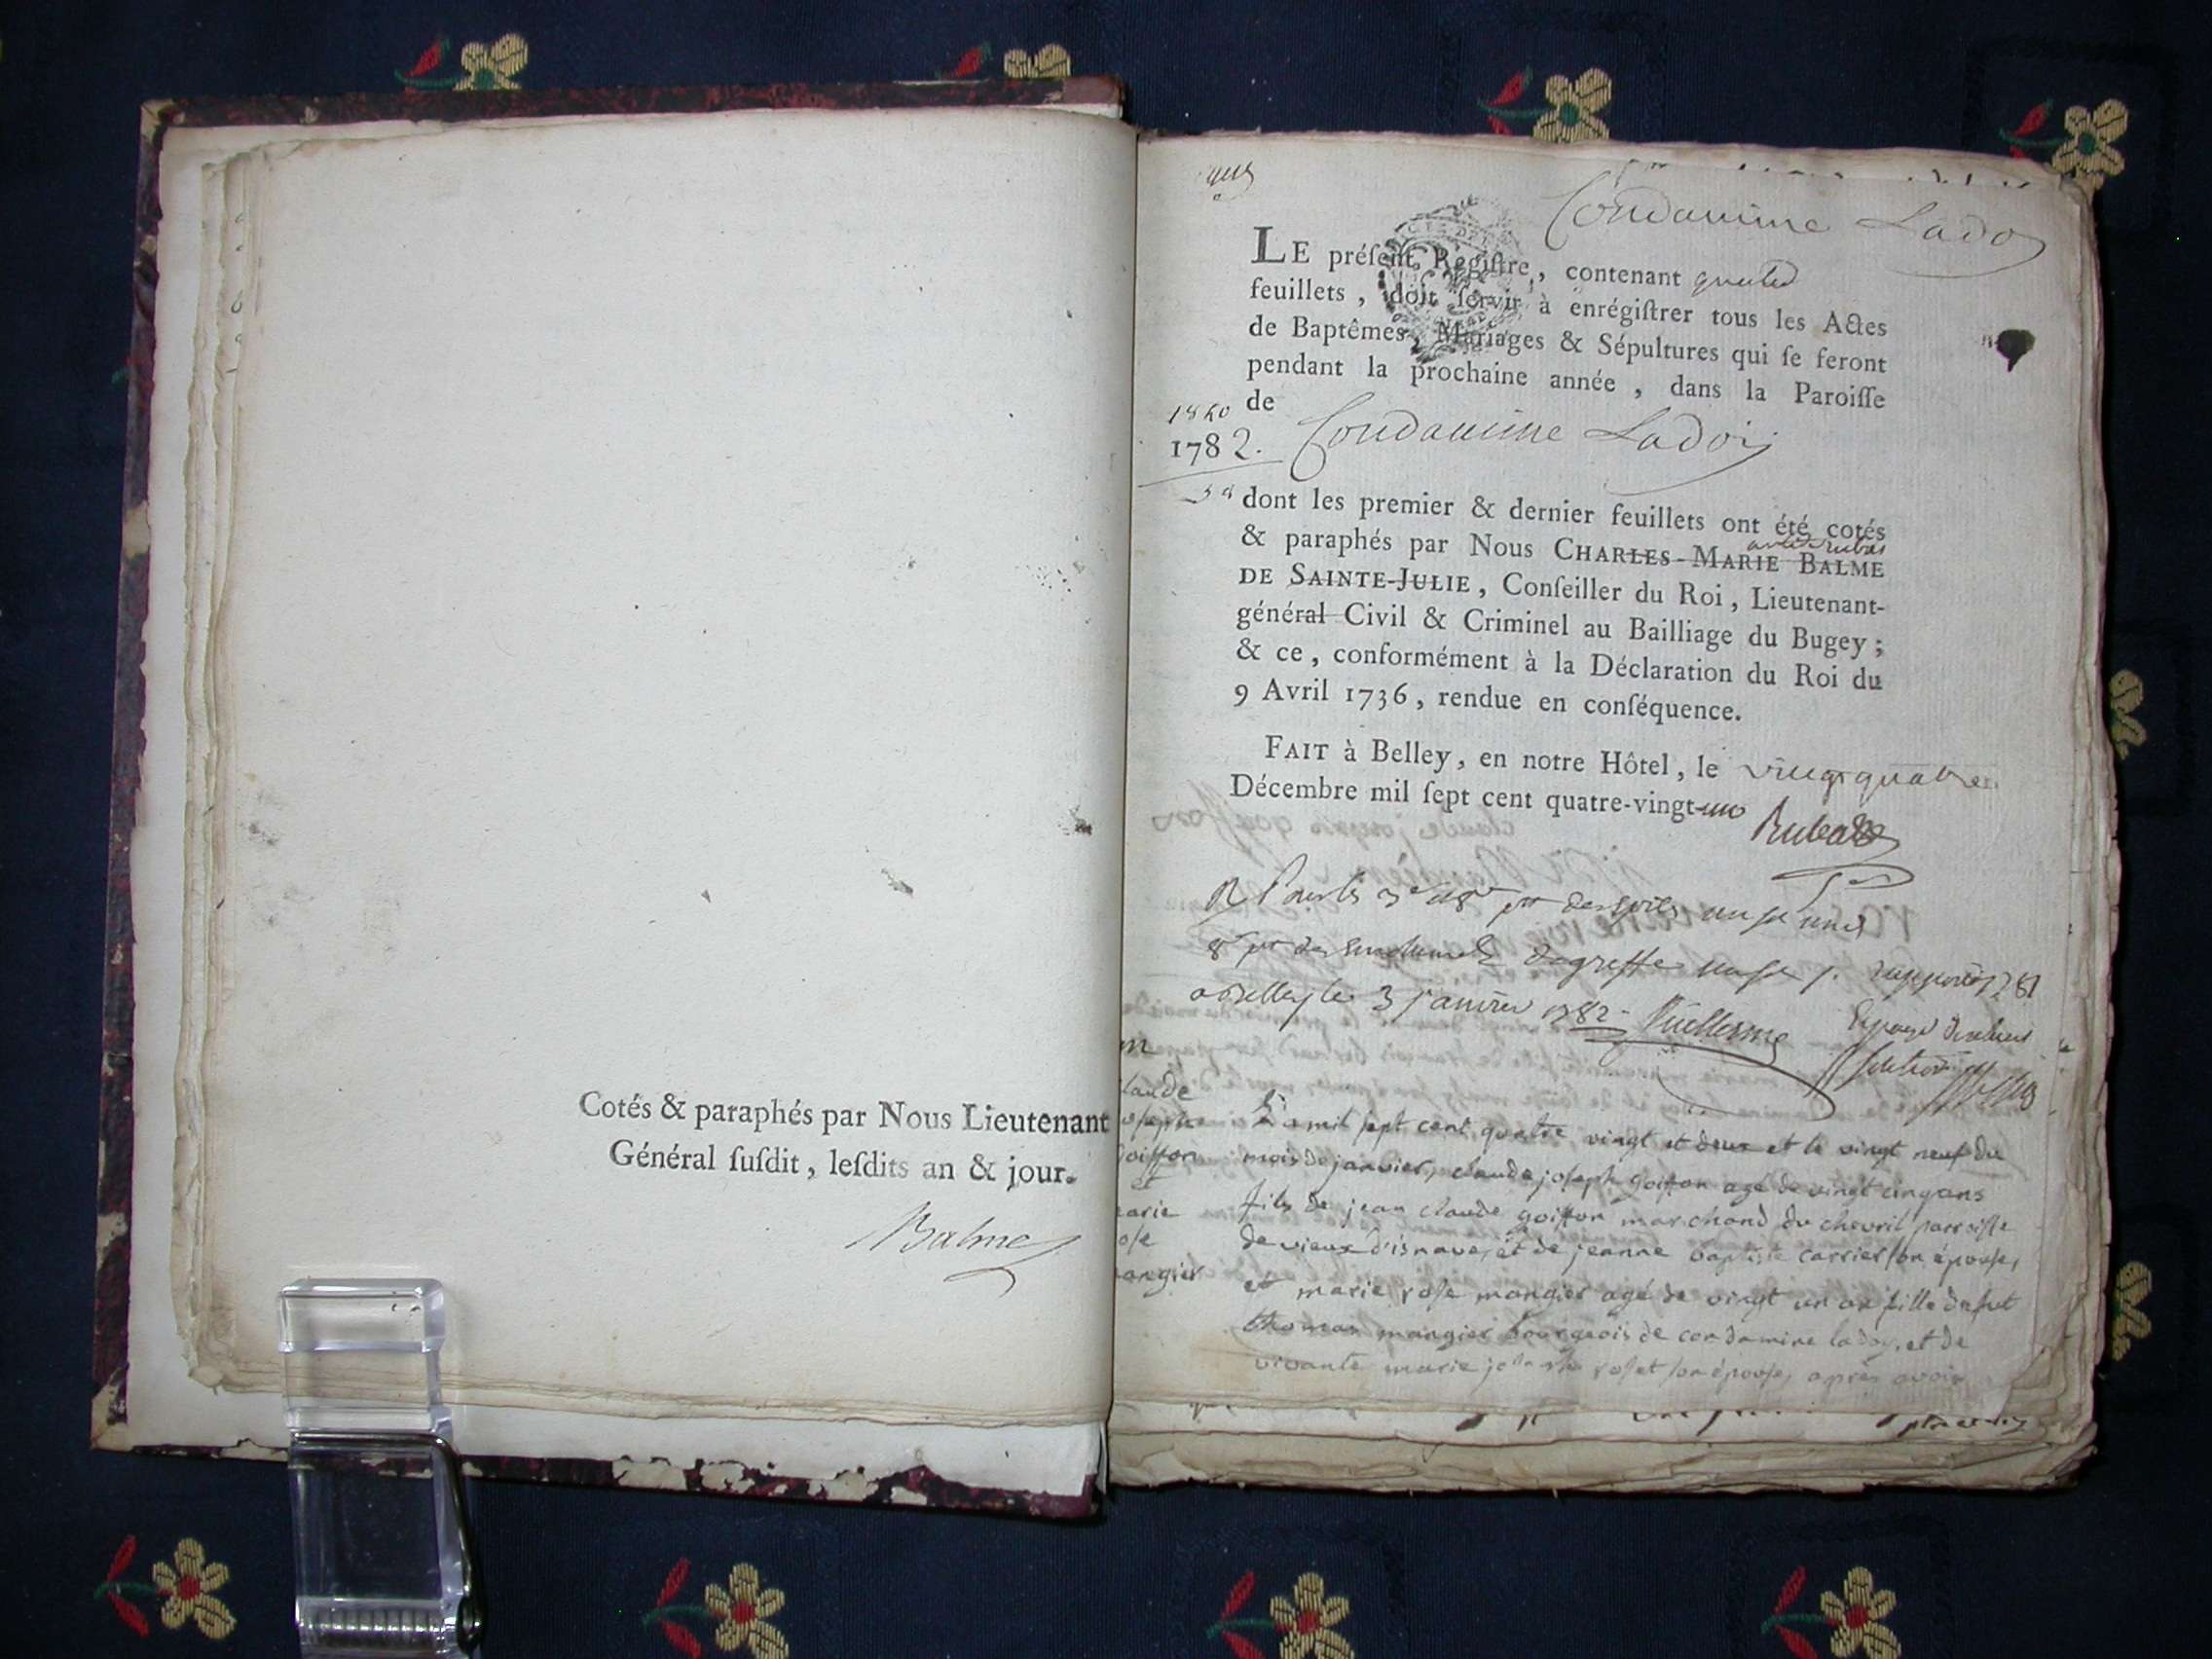 Cotés & paraphés par Nous Lieutenant
Général ſuſdit, leſdits an & jour.
Balme
Condamine Ladoy
LE préſent Régiſtre, contenant quatre
feuillets, doit ſervir à enrégiſtrer tous les Actes
de Baptêmes, Mariages & Sépultures qui ſe feront
pendant la prochaine année, dans la Paroiſſe
de
1782. Condamine Ladoy
dont les premier & dernier feuillets ont été cotés
& paraphés par Nous CHARLES-MARIE BALME
DE SAINTE-JULIE, Conſeiller du Roi, Lieutenant-
général Civil & Criminel au Bailliage du Bugey;
& ce, conformément à la Déclaration du Roi du
9 Avril 1736, rendue en conſéquence.
FAIT à Belley, en notre Hôtel, le vingt quatre
Décembre mil ſept cent quatre-vingt-un
a Belley le 3 janvier 1782
laude
oseph
Goiffon
et
marie
rose
mangier
L'a mil sept cent quatre vingt et deux et le vingt neuf du
mois de janvier, claude joseph goiffon agé de vingt cinq ans
fils de jean claude goiffon marchand du chevril parroisse
de vieux d'isnave, et de jeanne baptiste carrier son épouse,
et marie rose mangier agé de vingt un an fille de fut
thomas mangier bourgeois de condamine ladoy, et de
vivante marie roset son épouse, apres avoir